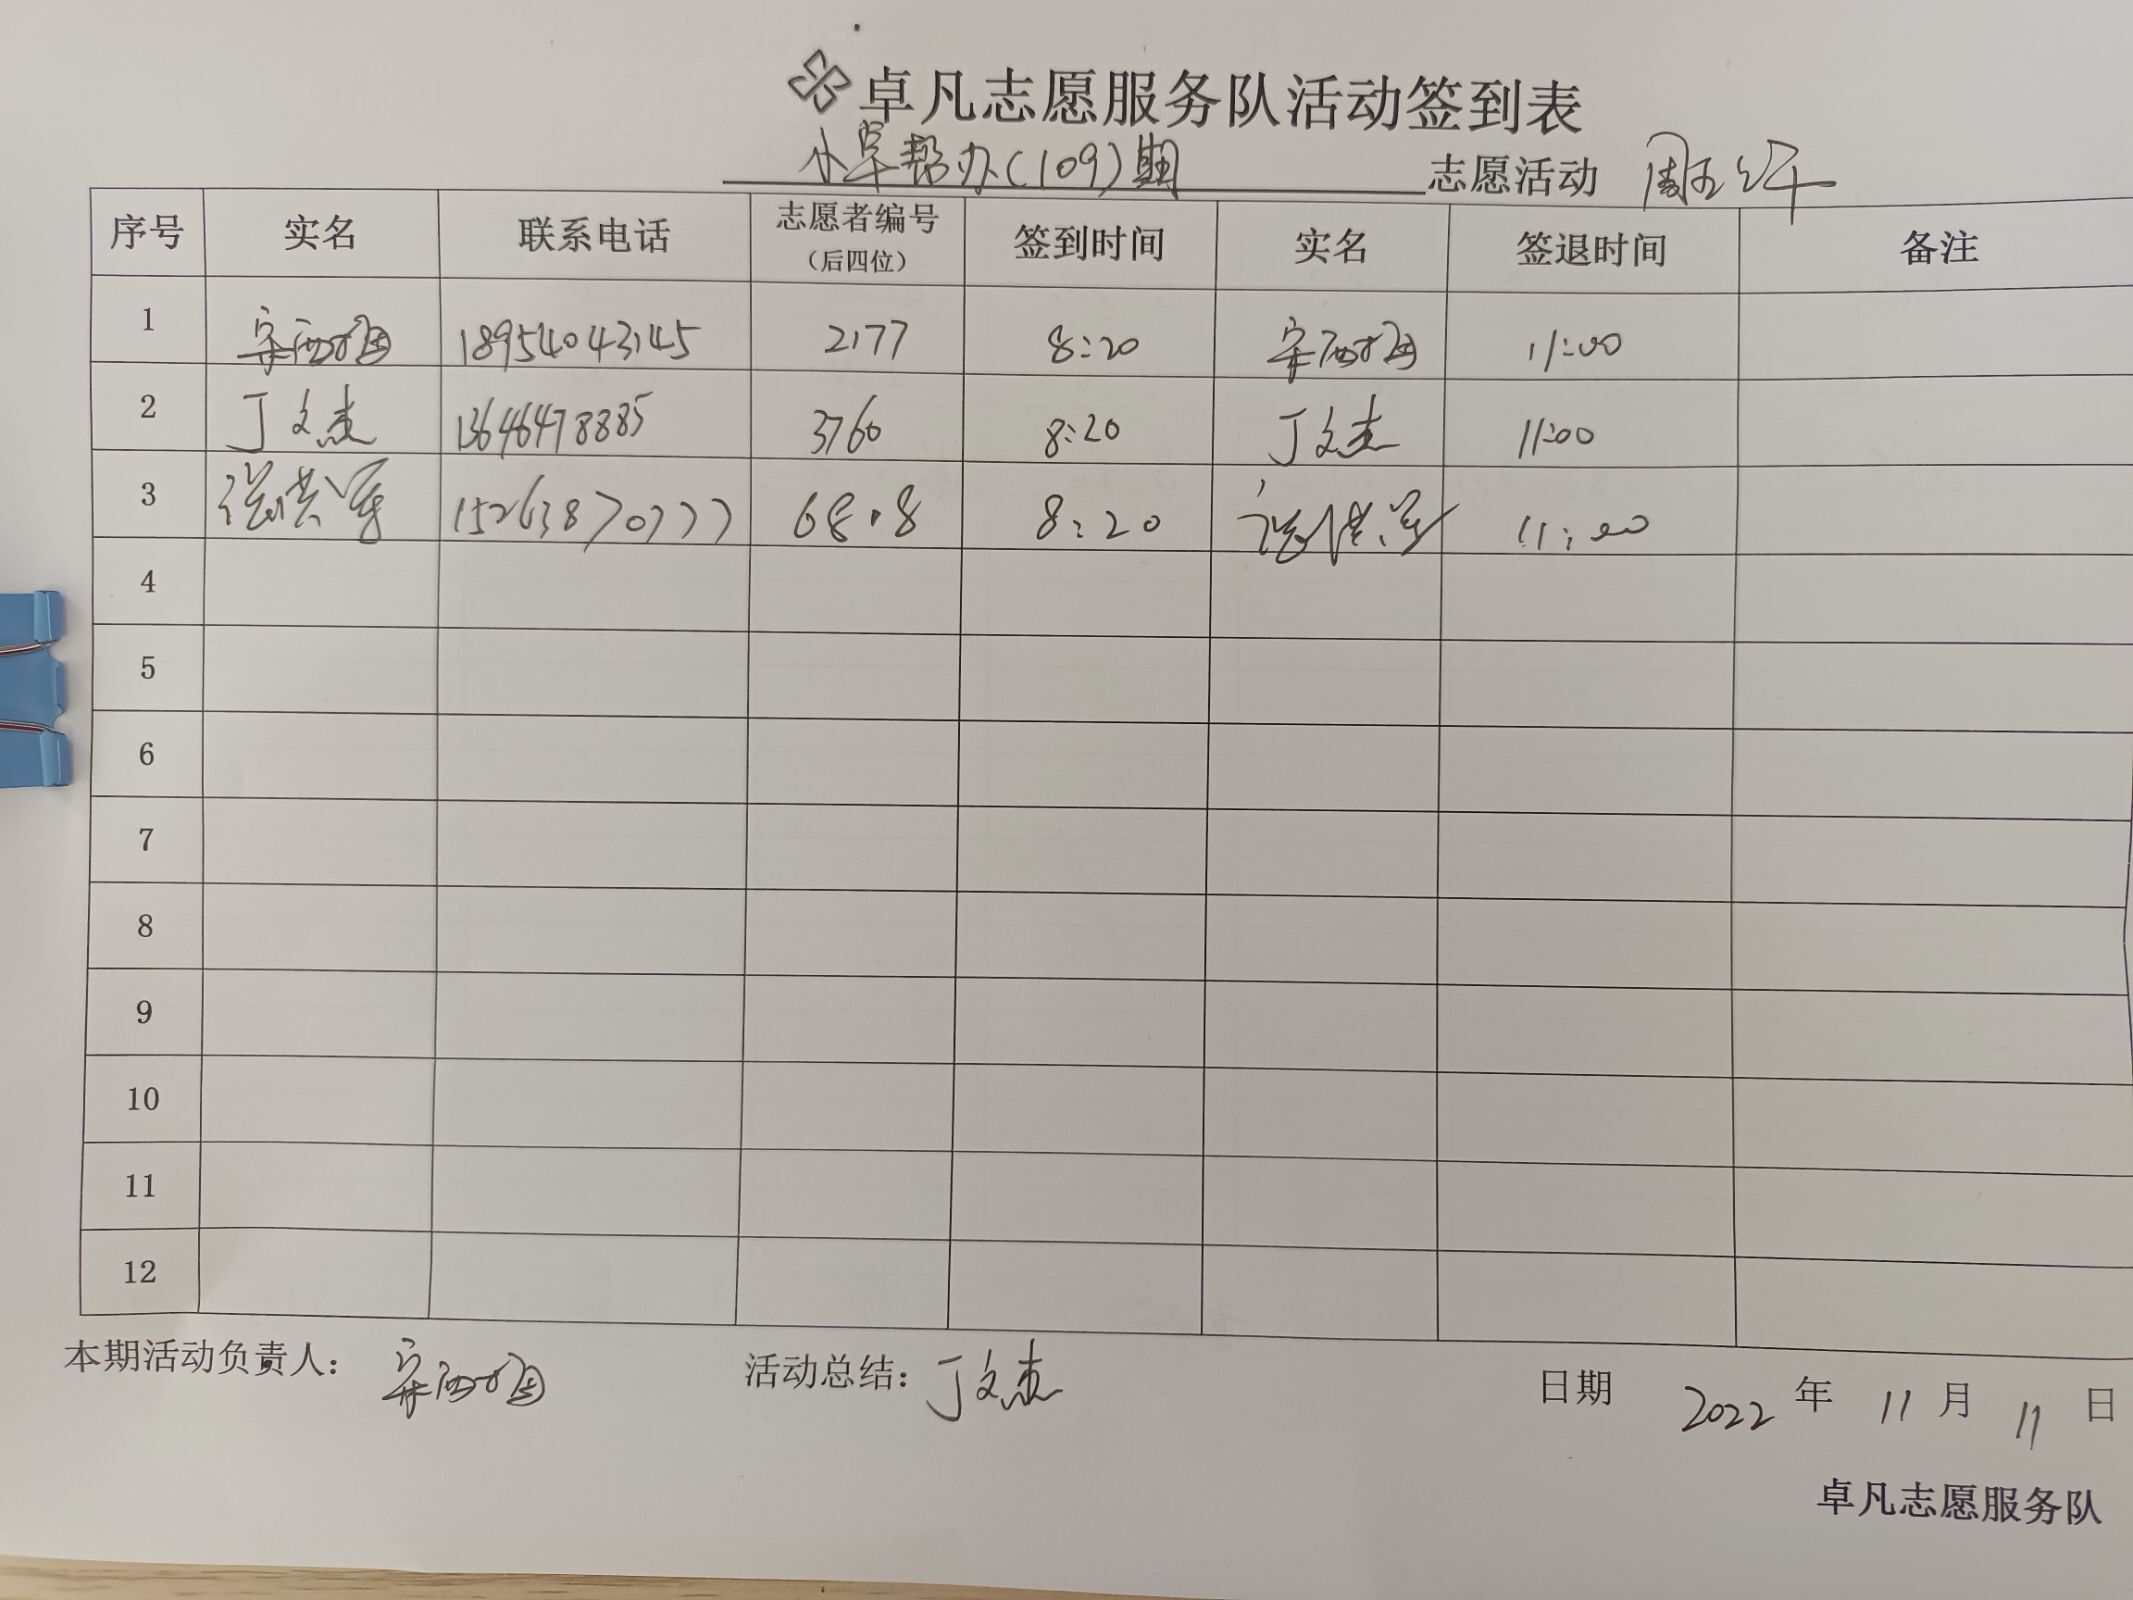 卓凡志愿服务队活动签到表
帮办(109)期 志愿活动 周五上午
序号 实名 联系电话 志愿者编号 (后四位) 签到时间 实名 签退时间 备注
1 18954043145 2177 8:20 11:00
2 丁文杰 13646478885 3760 8:20 丁文杰 11:00
3 15263870777 8:20 11:00
4
5
6
7
8
9
10
11
12
本期活动负责人： 活动总结：丁文杰 日期 2022 年 11 月 11 日
卓凡志愿服务队